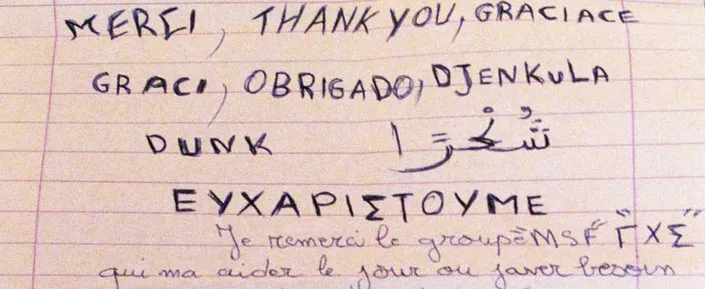 MERΣI, THANK YOU, GRACIACE
GRACI, OBRIGADO, DJENKULA
DUNK شُكْرًا
ΕΥΧΑΡΙΣΤΟΥΜΕ
Je remerci le groupe MSF "ΓΧΣ"
qui ma aider le jour ou javer besoin